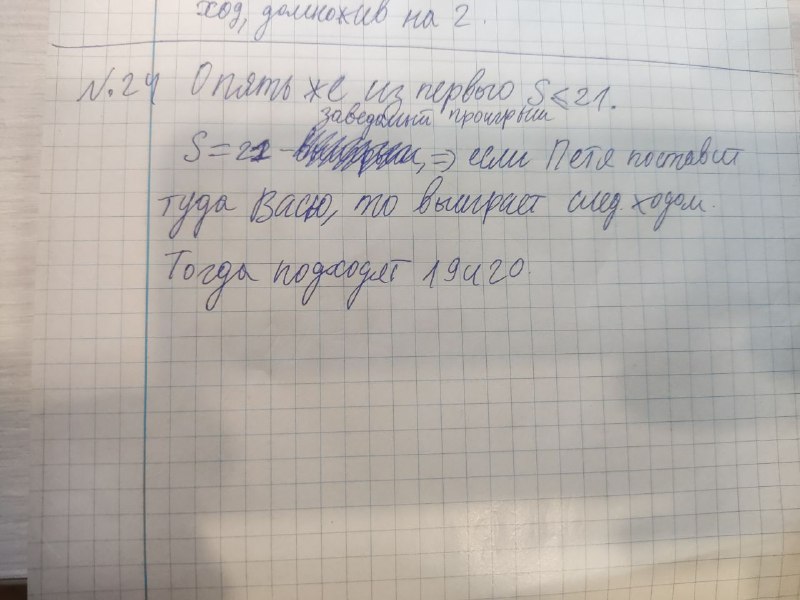 ход, домножив на 2.
№24 Опять же из первого S ⩽ 21.
заведомый проигрыш
S = 21 - , => если Петя поставит
туда Васю, то выиграет след. ходом.
Тогда подходят 19 и 20.